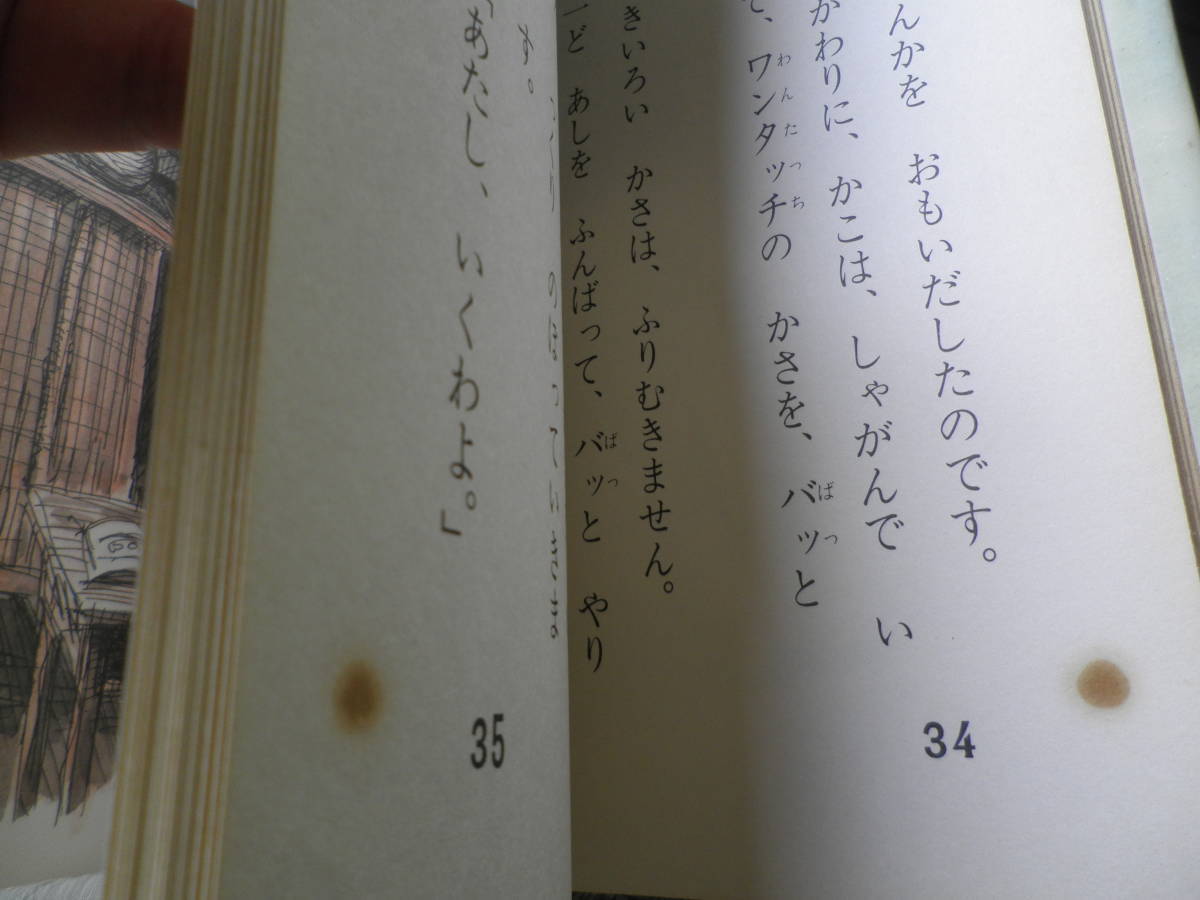 んかを おもいだしたのです。
かわりに、かこは、しゃがんで い
て、ワンタッチの かさを、バッと
きいろい かさは、ふりむきません。
一ど あしを ふんばって、バッと やり
34
す。
「あたし、いくわよ。」
35